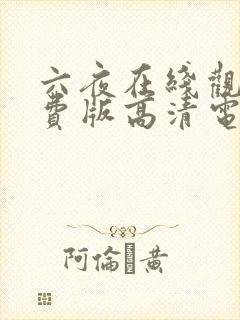 六夜在綫觀
費版高清電
阿倫 黄